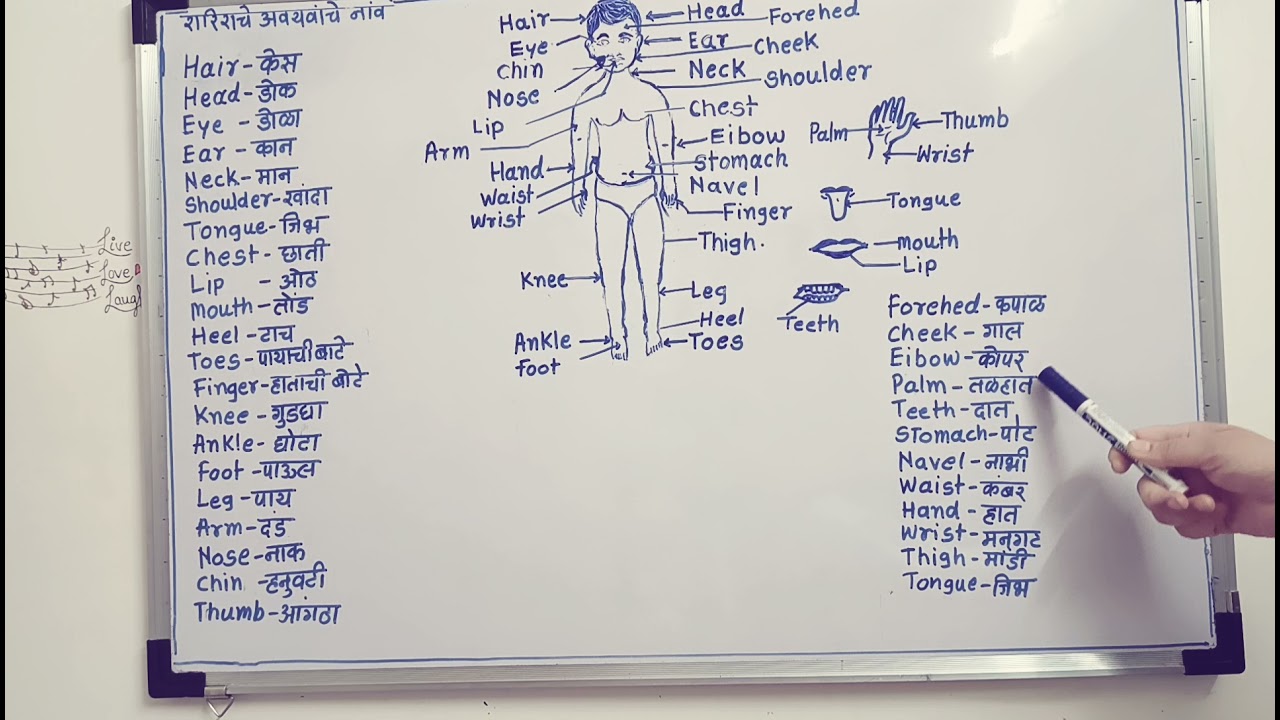 शरिराचे अवयवांचे नांव
Hair - केस
Head - डोक
Eye - डोळा
Ear - कान
Neck - मान
Shoulder - खांदा
Tongue - जिभ
Chest - छाती
Lip - ओठ
Mouth - तोंड
Heel - टाच
Toes - पायाची बाटे
Finger - हाताची बोटे
Knee - गुडघा
Ankle - घोटा
Foot - पाऊल
Leg - पाय
Arm - दंड
Nose - नाक
Chin - हनुवटी
Thumb - आंगठा
Hair
Eye
Chin
Nose
Lip
Arm
Hand
Waist
Wrist
Knee
Ankle
Foot
Head
Forehed
Ear
Cheek
Neck
Shoulder
Chest
Eibow
Stomach
Navel
Finger
Thigh.
Leg
Heel
Toes
Palm
Thumb
Wrist
Tongue
Mouth
Lip
Teeth
Forehed - कपाळ
Cheek - गाल
Eibow - कोपर
Palm - तळहात
Teeth - दात
Stomach - पोट
Navel - नाभी
Waist - कंबर
Hand - हात
Wrist - मनगट
Thigh - मांडी
Tongue - जिभ
Live
Love
Laugh